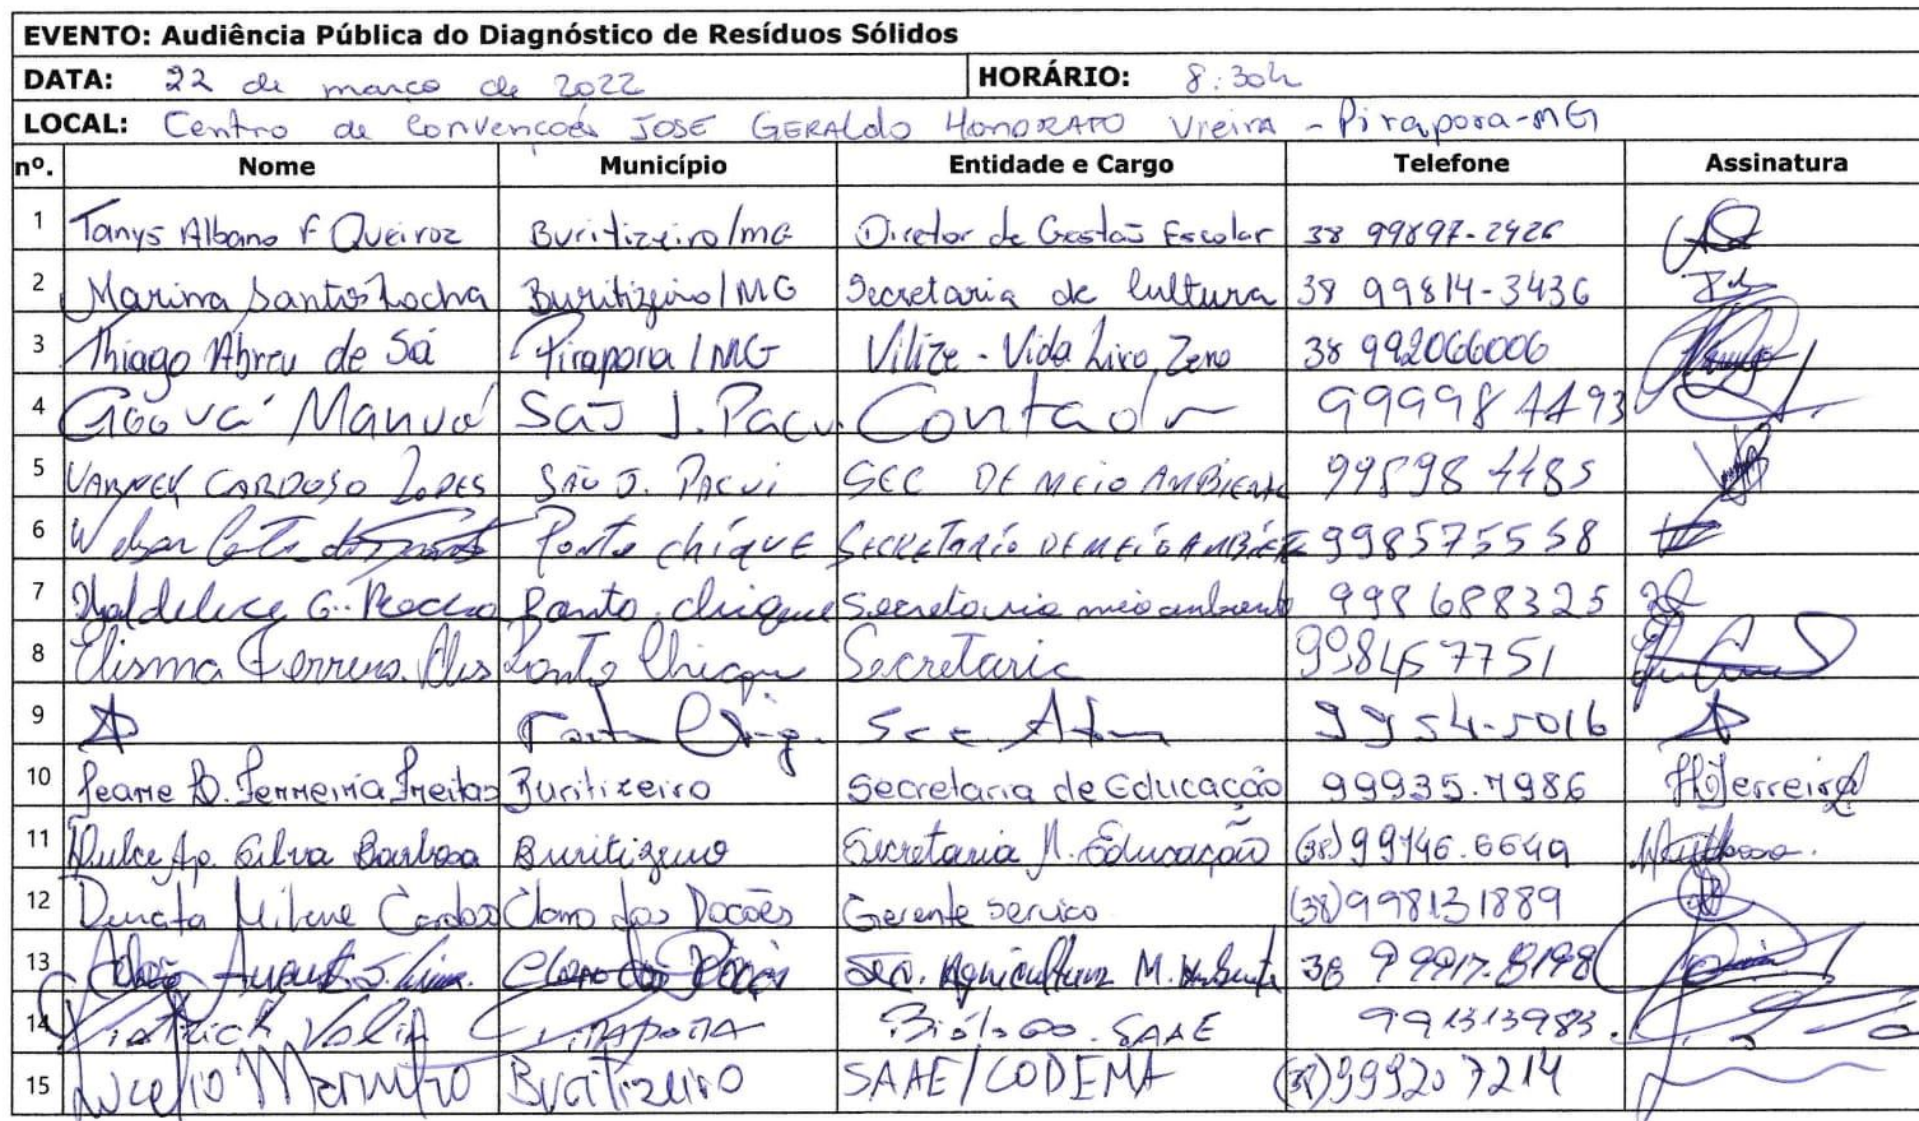 EVENTO: Audiência Pública do Diagnóstico de Resíduos Sólidos
DATA: 22 de março de 2022 HORÁRIO: 8:30h
LOCAL: Centro de Convenções JOSE GERALDO HONORATO Vieira - Pirapora-MG
nº. Nome Município Entidade e Cargo Telefone Assinatura
1 Tanys Albano F Queiroz Buritizeiro/MG Diretor de Gestão Escolar 38 99897-2426
2 Marina Santos Rocha Buritizeiro/MG Secretaria de Cultura 38 99814-3436
3 Thiago Abreu de Sá Pirapora/MG Vilize - Vida Lixo Zero 38 992066006
4 São J. Pacu Contador
5 CARDOSO LOPES SÃO J. PACUI SEC DE MEIO AMBIENTE
6 Ponto chique SECRETARIO DE MEIO AMBIENTE 998575558
7 G. Rocha Ponto chique Secretaria meio ambiente 998688325
8 Elisma Ferreira Ponto Chique Secretaria 998457751
9 Sec 9954-5016
10 D. Ferreira Freitas Buritizeiro Secretaria de Educação 99935.7986 Ferreira
11 Dulce Ap. Silva Barbosa Buritizeiro Secretaria M. Educação (38) 99146.6649
12 Renata Milene Cardoso Claro dos Poções Gerente serviço (38) 998131889
13 Claro dos Poções Sec. Agricultura M. Ambiente 38
14 Pirapora Biólogo - SAAE 991313983
15 Lucelio Marinho Buritizeiro SAAE/CODEMA (38) 99920 7214